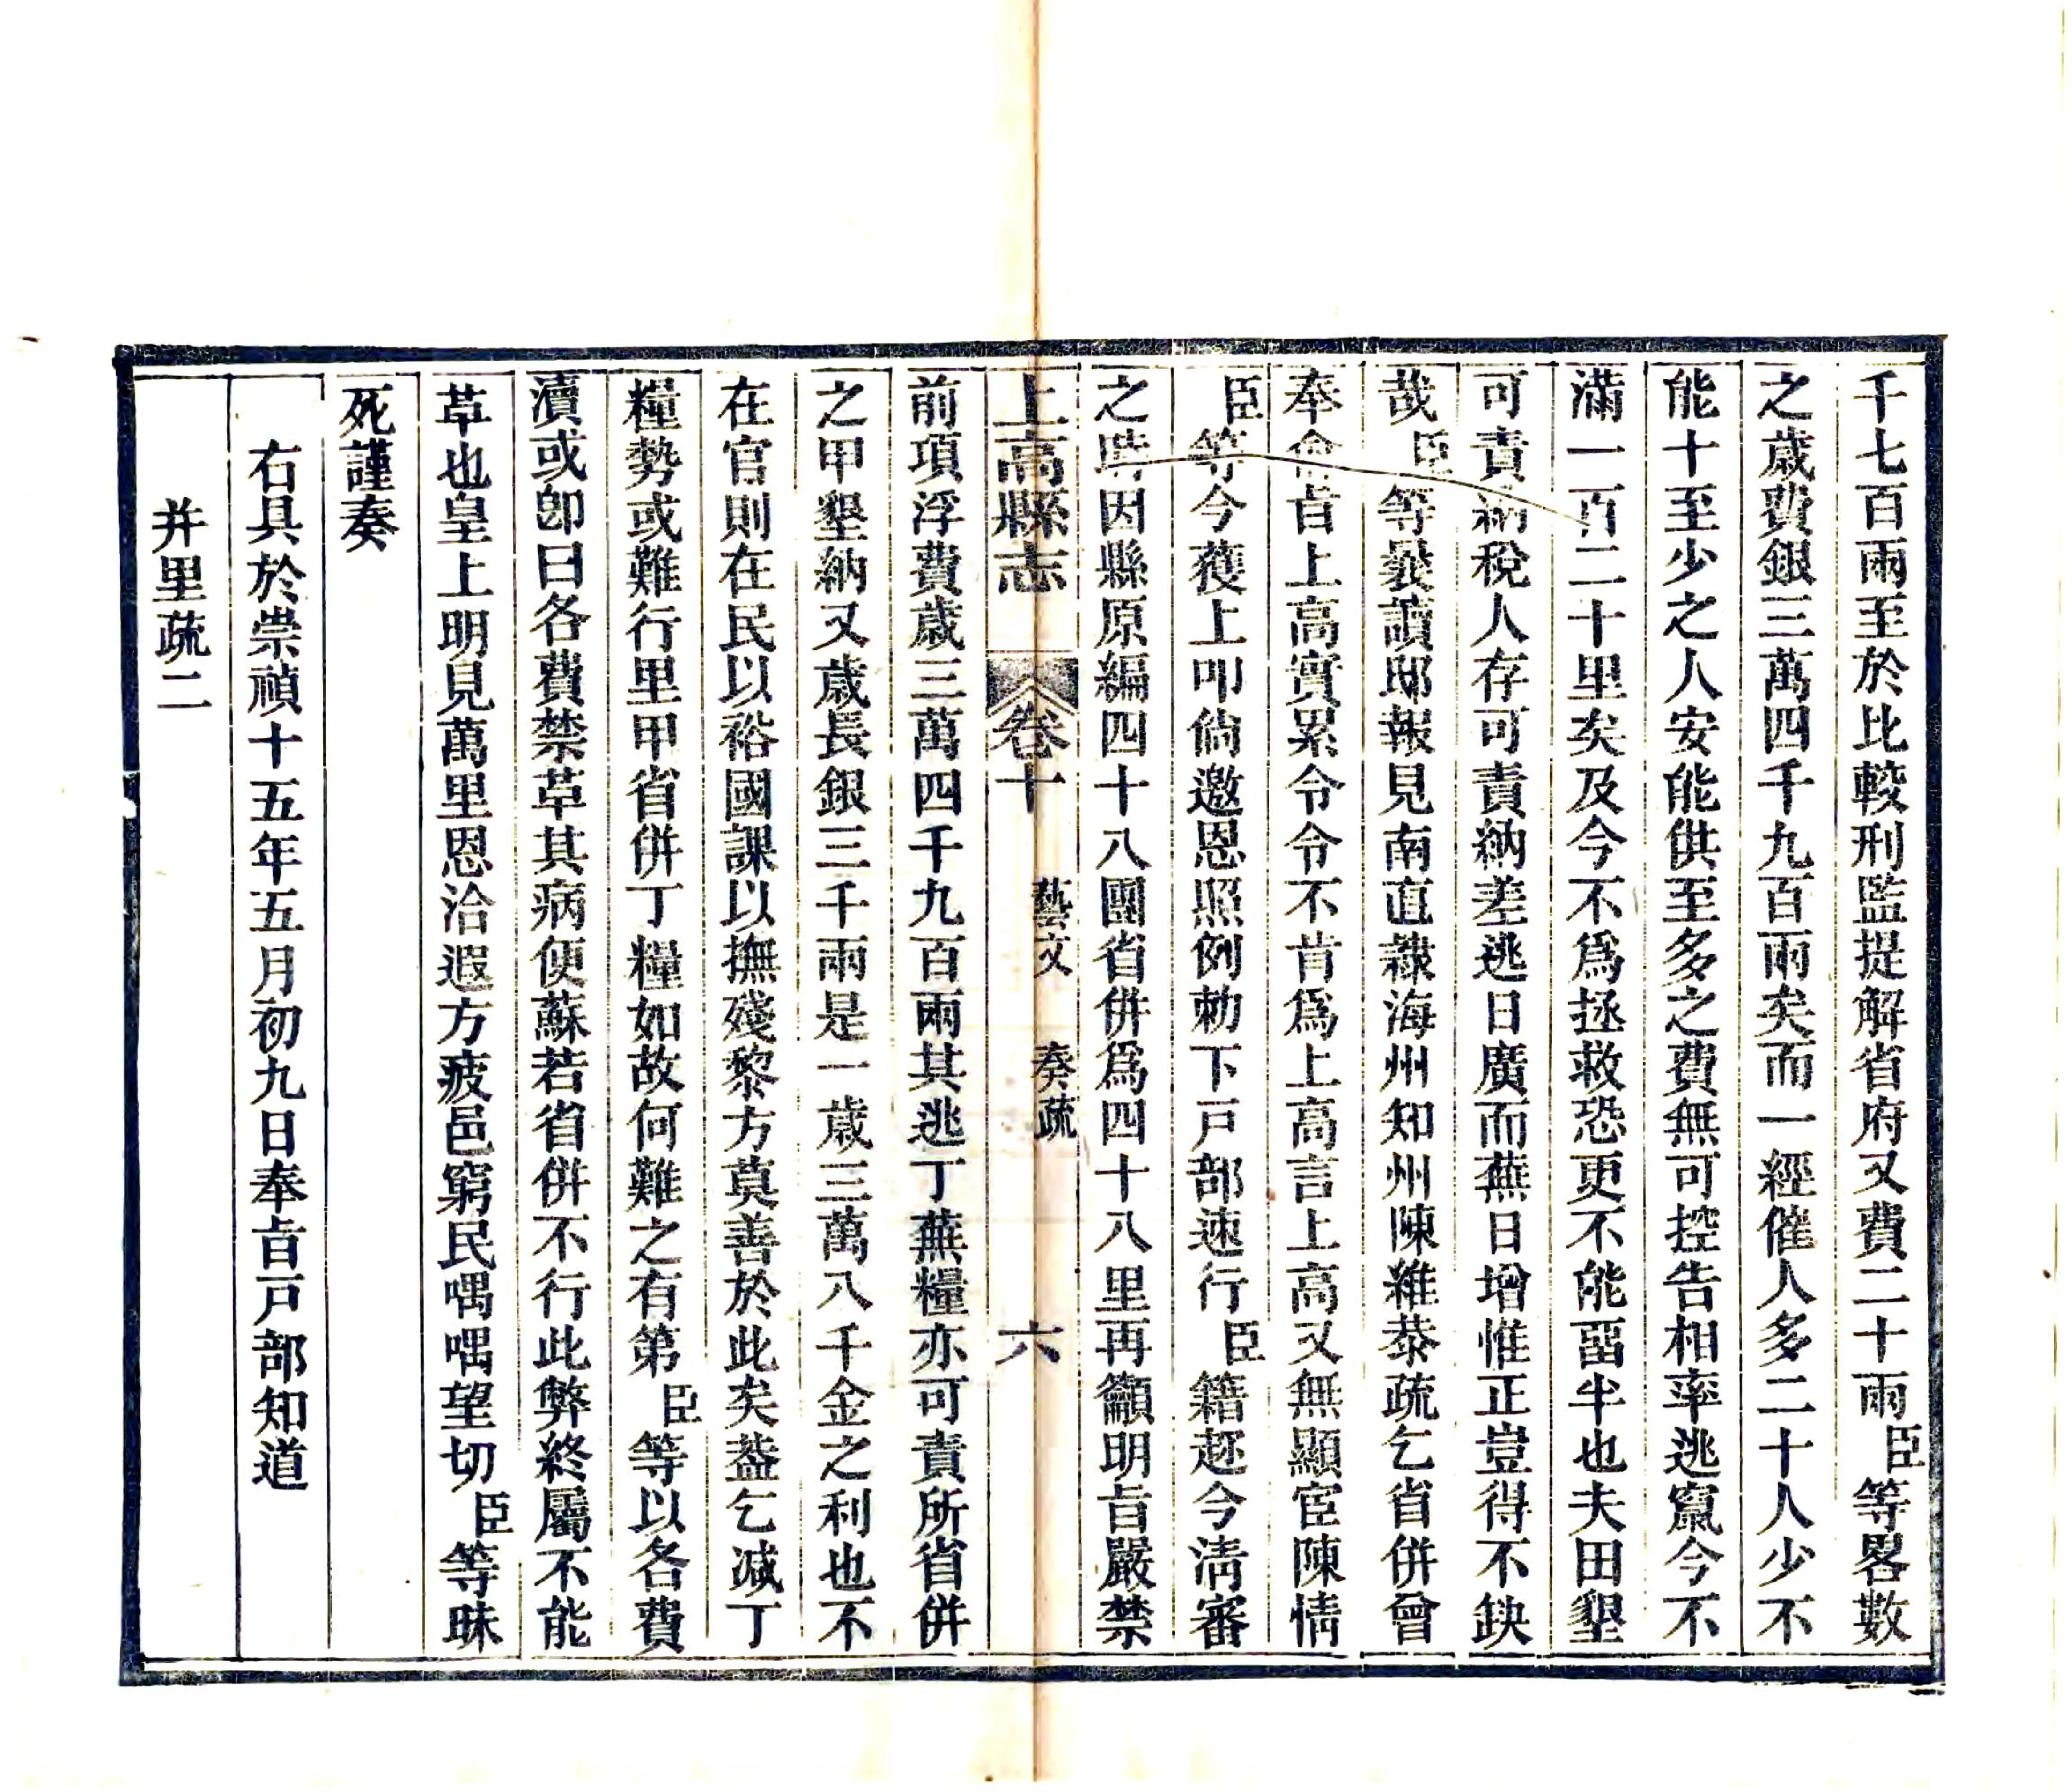 千七百兩至於比較刑監提解省府又費二十兩臣等畧數
之歲費銀三萬四千九百兩矣而一經催人多二十人少不
能十至少之人安能供至多之費無可控告相率逃竄今不
滿一百二十里矣及今不爲拯救恐更不能畱半也夫田墾
可責納稅人存可責納差逃日廣而蕪日增惟正豈得不缺
哉臣等曩讀邸報見南直隸海州知州陳維恭疏乞省併曾
奉俞旨上高實累令令不肯爲上高言上高又無顯宦陳情
臣等今獲上叩倘邀恩照例勅下戸部速行臣籍趂今淸審
之時因縣原編四十八團省併爲四十八里再籲明旨嚴禁
上高縣志 卷十 藝文 奏疏 六
前項浮費歲三萬四千九百兩其逃丁蕪糧亦可責所省併
之甲墾納又歲長銀三千兩是一歲三萬八千金之利也不
在官則在民以裕國課以撫殘黎方莫善於此矣葢乞减丁
糧勢或難行里甲省併丁糧如故何難之有第臣等以各費
瀆或卽曰各費禁草其病便蘇若省併不行此弊終屬不能
草也皇上明見萬里恩洽遐方疲邑窮民喁喁望切臣等昧
死謹奏
右具於崇禎十五年五月初九日奉旨戸部知道
并里疏二